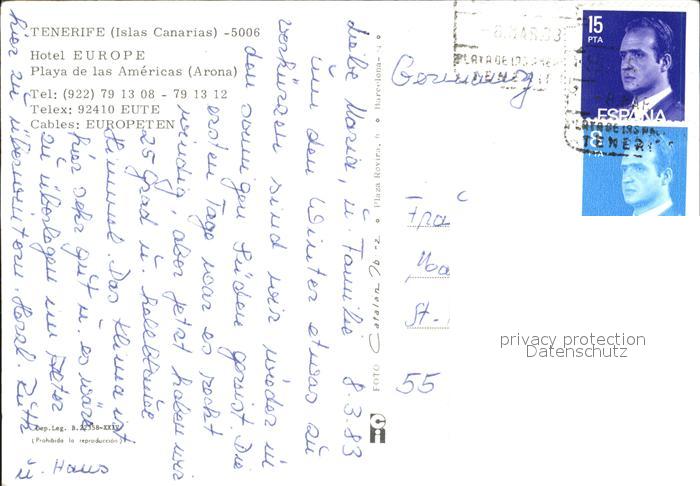 TENERIFE (Islas Canarias) -5006
Hotel EUROPE
Playa de las Américas (Arona)
Tel: (922) 79 13 08 - 79 13 12
Telex: 92410 EUTE
Cables: EUROPETEN
Liebe Maria, u. Familie 8.3.83
um den Winter etwas zu
verkürzen sind wir wieder in
den sonnigen Süden gereist. Die
ersten Tage war es recht
windig, aber jetzt haben wir
25 Grad u. hellblauer
Himmel. Das Klima ist
hier sehr gut u. es wäre
zu überlegen im Alter
hier zu überwintern. Herzl. Ruth
u. Hans
Dep. Leg. B. 22358-XXIV
(Prohibida la reproducción)
FOTO Catalan Ibz.
Plaza Rovira, Barcelona
Germany
15
PTA
ESPAÑA
8
PTA
8 MAR 83
PLAYA DE LAS
TENERIFE
Fra
St.
55
privacy protection
Datenschutz